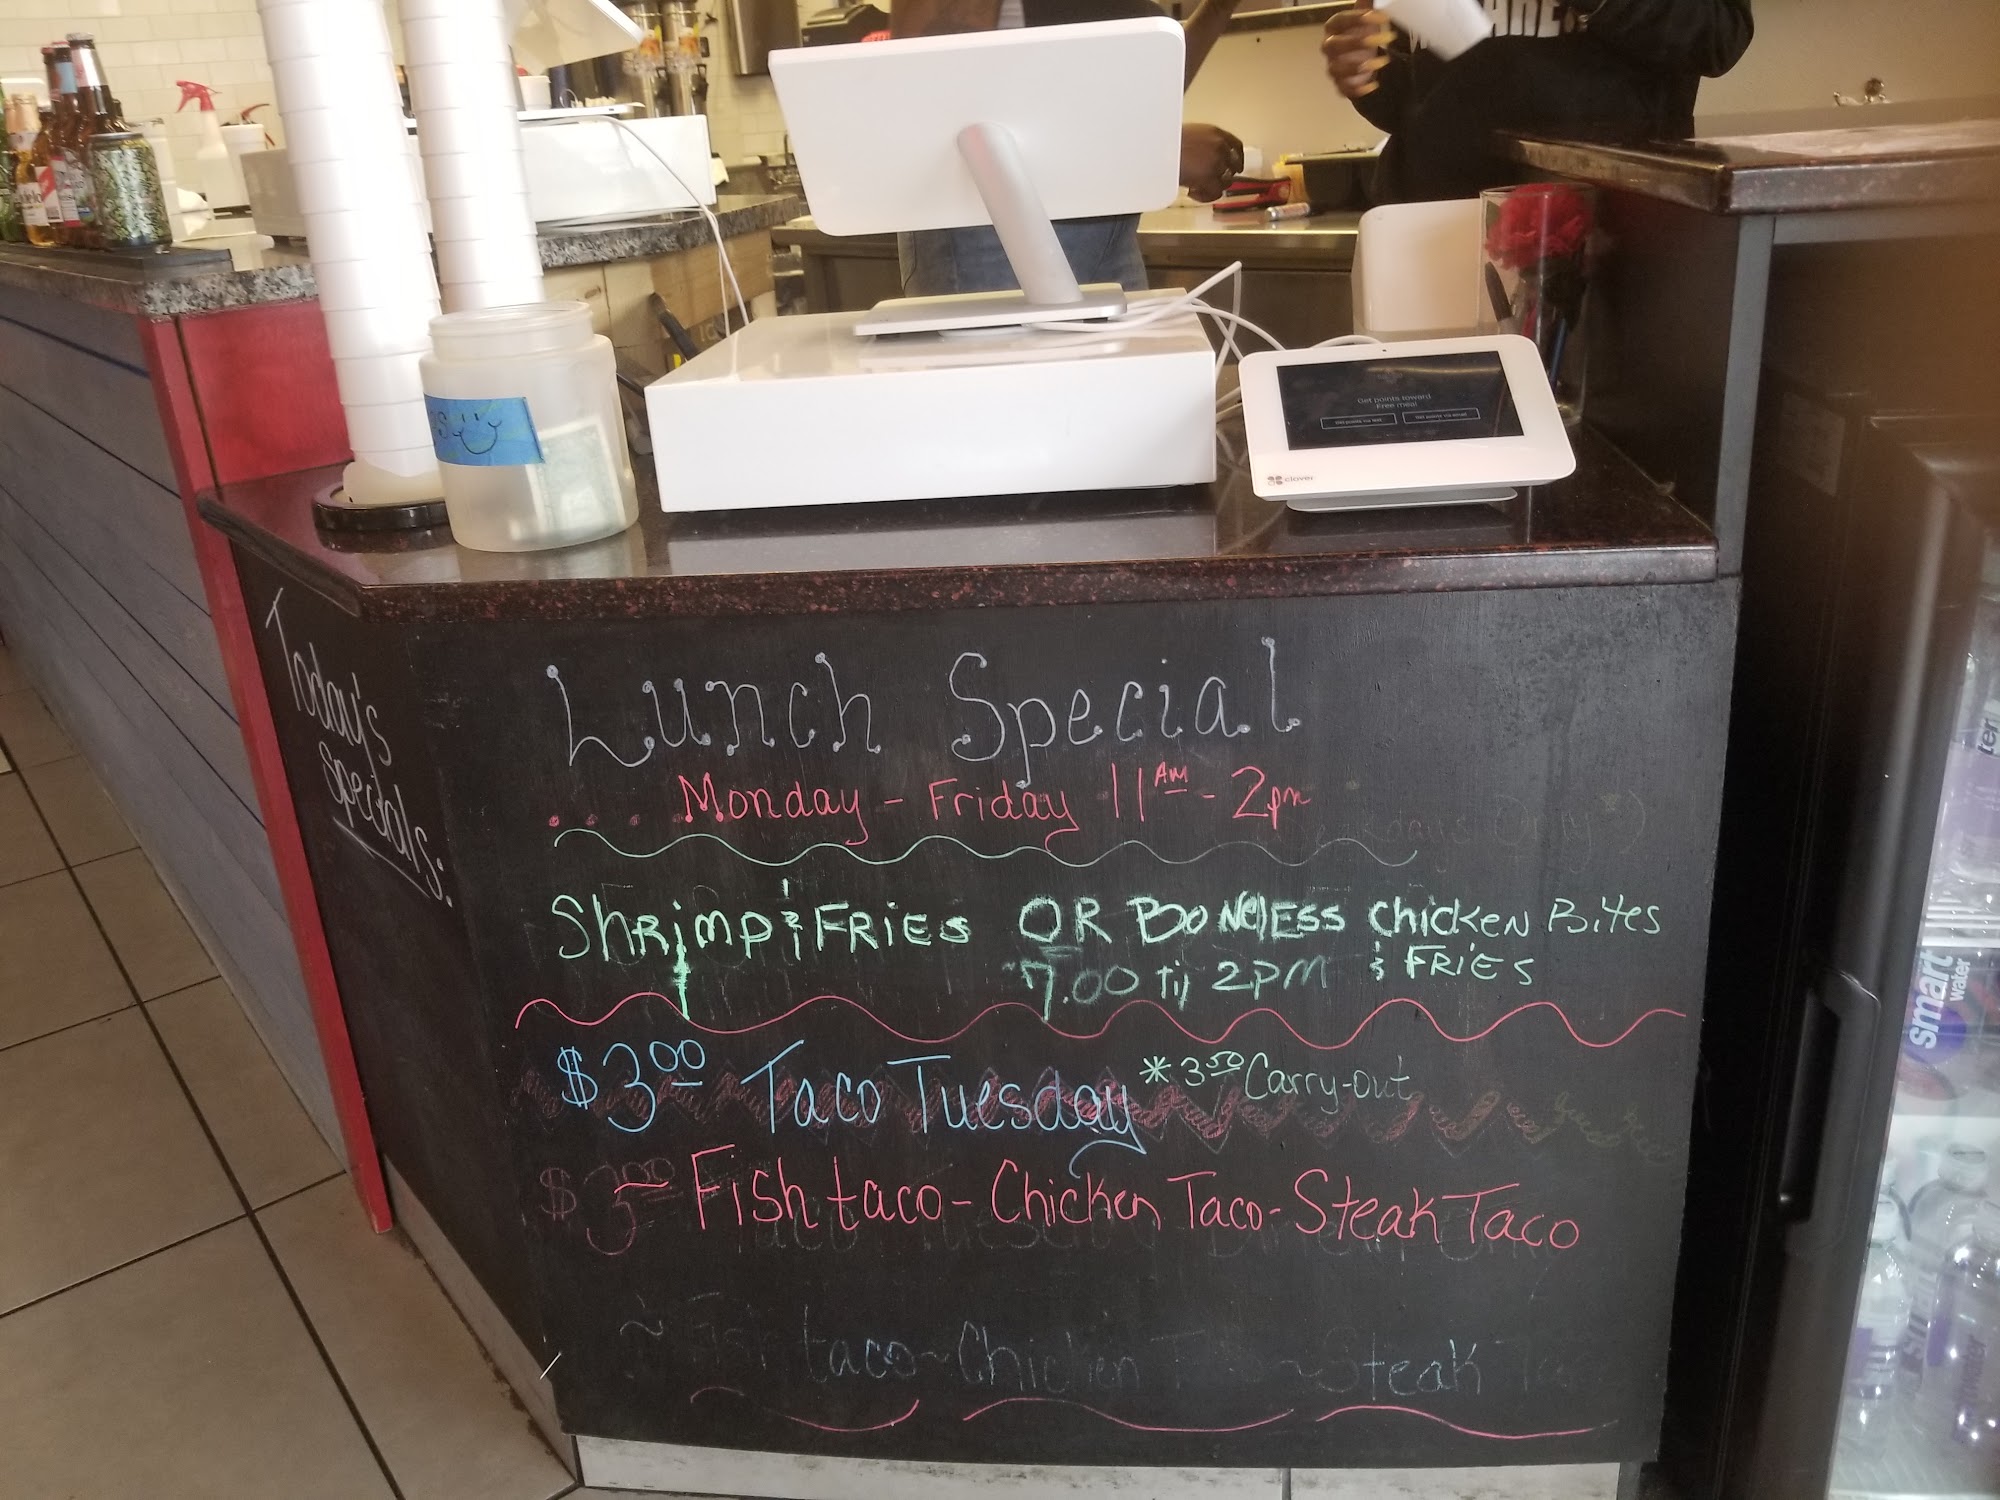 Get points toward
Free meal
clover
Today's
Specials:
Lunch Special
.... Monday - Friday 11AM - 2pm
Shrimp & FRIES OR BONElESS Chicken Bites
7.00 til 2PM & FRIES
$3.00 Taco Tuesday *3.50 Carry-out
$3.00 Fish taco - Chicken Taco - Steak Taco
~ Fish taco ~ Chicken ~ Steak
smart
water